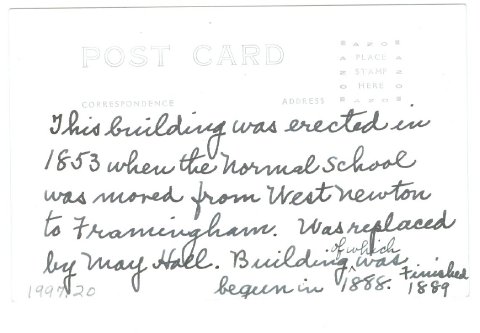 POST CARD
AZO
PLACE
STAMP
HERE
AZO
CORRESPONDENCE
ADDRESS
This building was erected in
1853 when the Normal School
was moved from West Newton
to Framingham. Was replaced
by May Hall. Building ^of which was
begun in 1888. Finished
1889
1997.20